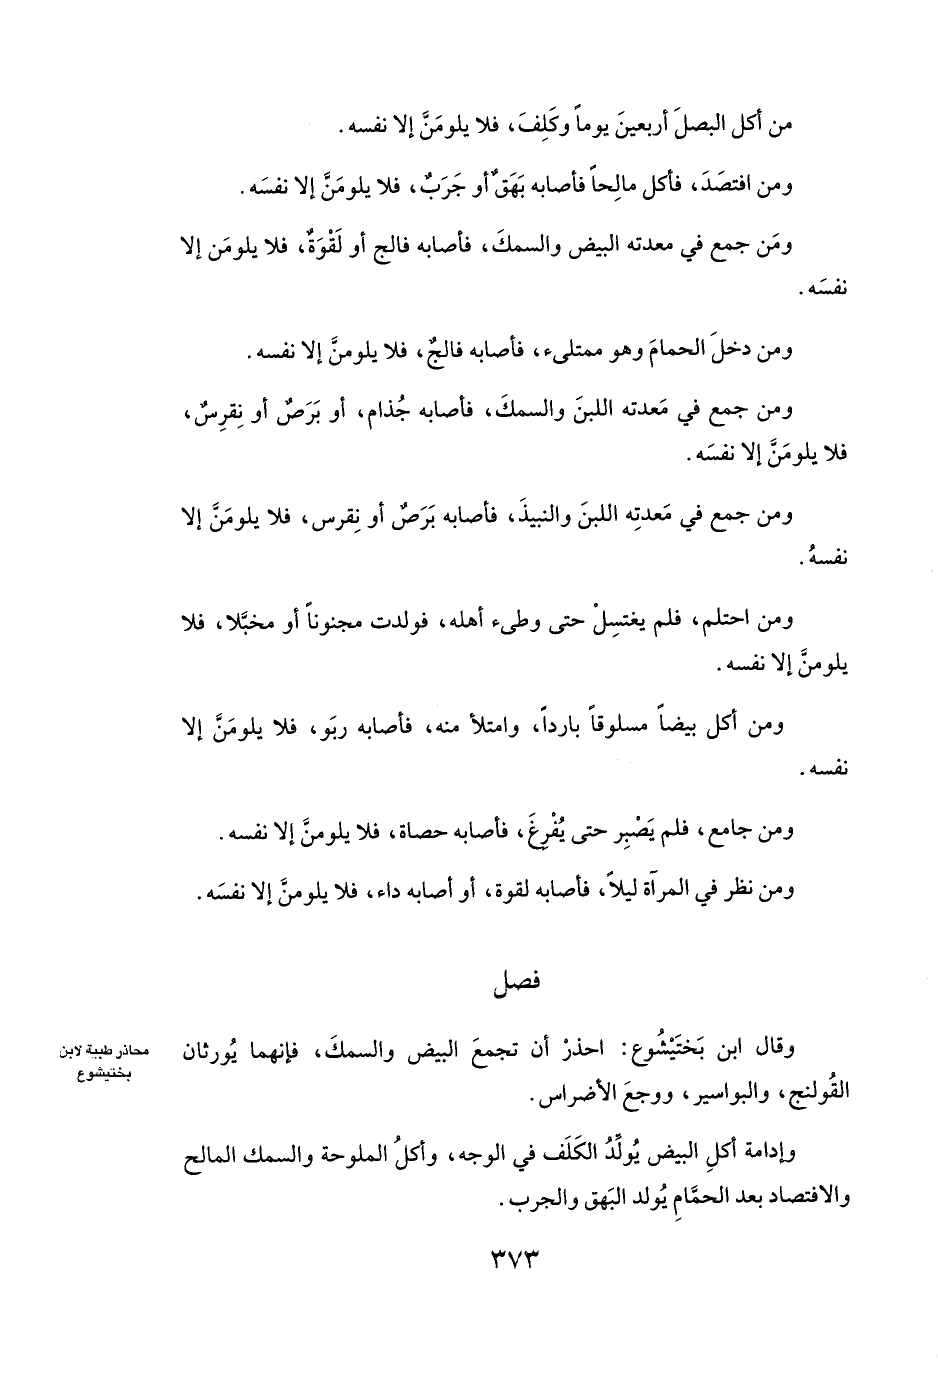 من أكل البصلَ أربعينَ يوماً وكَلِفَ، فلا يلومَنَّ إلا نفسه.
ومن افتصَدَ، فأكل مالِحاً فأصابه بَهَقٌ أو جَرَبٌ، فلا يلومَنَّ إلا نفسَه.
ومَن جمع في معدته البيض والسمكَ، فأصابه فالج أو لَقْوَةٌ، فلا يلومَن إلا
نفسَه.
ومن دخلَ الحمامَ وهو ممتلىء، فأصابه فالجٌ، فلا يلومنَّ إلا نفسه.
ومن جمع في مَعدته اللبنَ والسمكَ، فأصابه جُذام، أو بَرَصٌ أو نِقرِسٌ،
فلا يلومَنَّ إلا نفسَه.
ومن جمع في مَعدتِه اللبنَ والنبيذَ، فأصابه بَرَصٌ أو نِقرس، فلا يلومَنَّ إلا
نفسهُ.
ومن احتلم، فلم يغتسِلْ حتى وطىء أهله، فولدت مجنوناً أو مخبَّلا، فلا
يلومنَّ إلا نفسه.
ومن أكل بيضاً مسلوقاً بارداً، وامتلأ منه، فأصابه ربَو، فلا يلومَنَّ إلا
نفسه.
ومن جامع، فلم يَصْبِر حتى يُفْرِغَ، فأصابه حصاة، فلا يلومنَّ إلا نفسه.
ومن نظر في المرآة ليلاً، فأصابه لقوة، أو أصابه داء، فلا يلومنَّ إلا نفسَه.
فصل
وقال ابن بَختَيْشُوع: احذرْ أن تجمعَ البيض والسمكَ، فإنهما يُورثان
محاذر طبية لابن
بختيشوع
القُولنج، والبواسير، ووجعَ الأضراس.
وإدامة أكلِ البيض يُولِّدُ الكَلَف في الوجه، وأكلُ الملوحة والسمك المالح
والافتصاد بعد الحمَّامِ يُولد البَهق والجرب.
٣٧٣